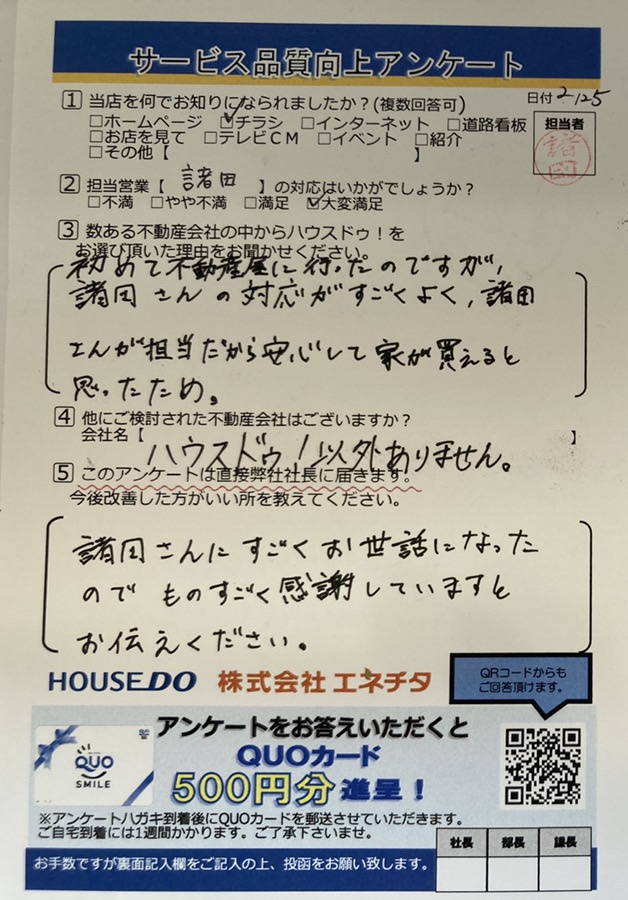 サービス品質向上アンケート
1 当店を何でお知りになられましたか？(複数回答可)
日付 2.125
□ホームページ ☑チラシ □インターネット □道路看板
□お店を見て □テレビCM □イベント □紹介
□その他【 】
担当者
諸田
2 担当営業【 諸田 】の対応はいかがでしょうか？
□不満 □やや不満 □満足 ☑大変満足
3 数ある不動産会社の中からハウスドゥ！を
お選び頂いた理由をお聞かせください。
初めて不動産屋に行ったのですが、
諸田さんの対応がすごくよく、諸田
さんが担当だから安心して家が買えると
思ったため。
4 他にご検討された不動産会社はございますか？
会社名【 】
ハウスドゥ！以外ありません。
5 このアンケートは直接弊社社長に届きます。
今後改善した方がいい所を教えてください。
諸田さんにすごくお世話になった
のでものすごく感謝していますと
お伝えください。
HOUSEDO 株式会社 エネチタ
QRコードからも
ご回答頂けます。
アンケートをお答えいただくと
QUOカード
500円分 進呈！
QUO
SMILE
※アンケートハガキ到着後にQUOカードを郵送させていただきます。
ご自宅到着には1週間かかります。ご了承下さいませ。
社長 部長 課長
お手数ですが裏面記入欄をご記入の上、投函をお願い致します。